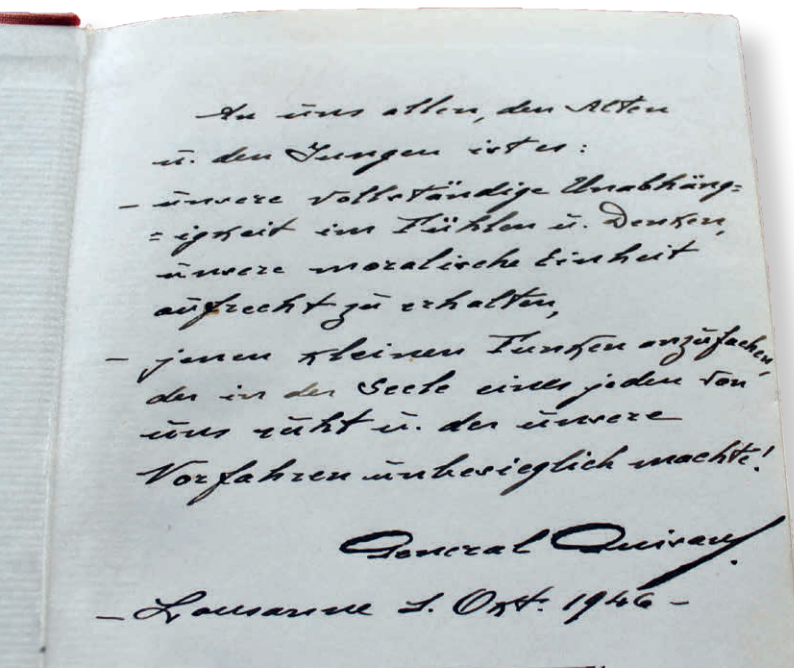 An uns allen, den Alten
u. den Jungen ist es:
– unsere vollständige Unabhäng=
=igkeit im Fühlen u. Denken,
unsere moralische Einheit
aufrecht zu erhalten,
– jenen kleinen Funken anzufachen,
der in der Seele eines jeden von
uns ruht u. der unsere
Vorfahren unbesieglich machte!
General Guisan.
– Lausanne 1. Okt. 1946 –